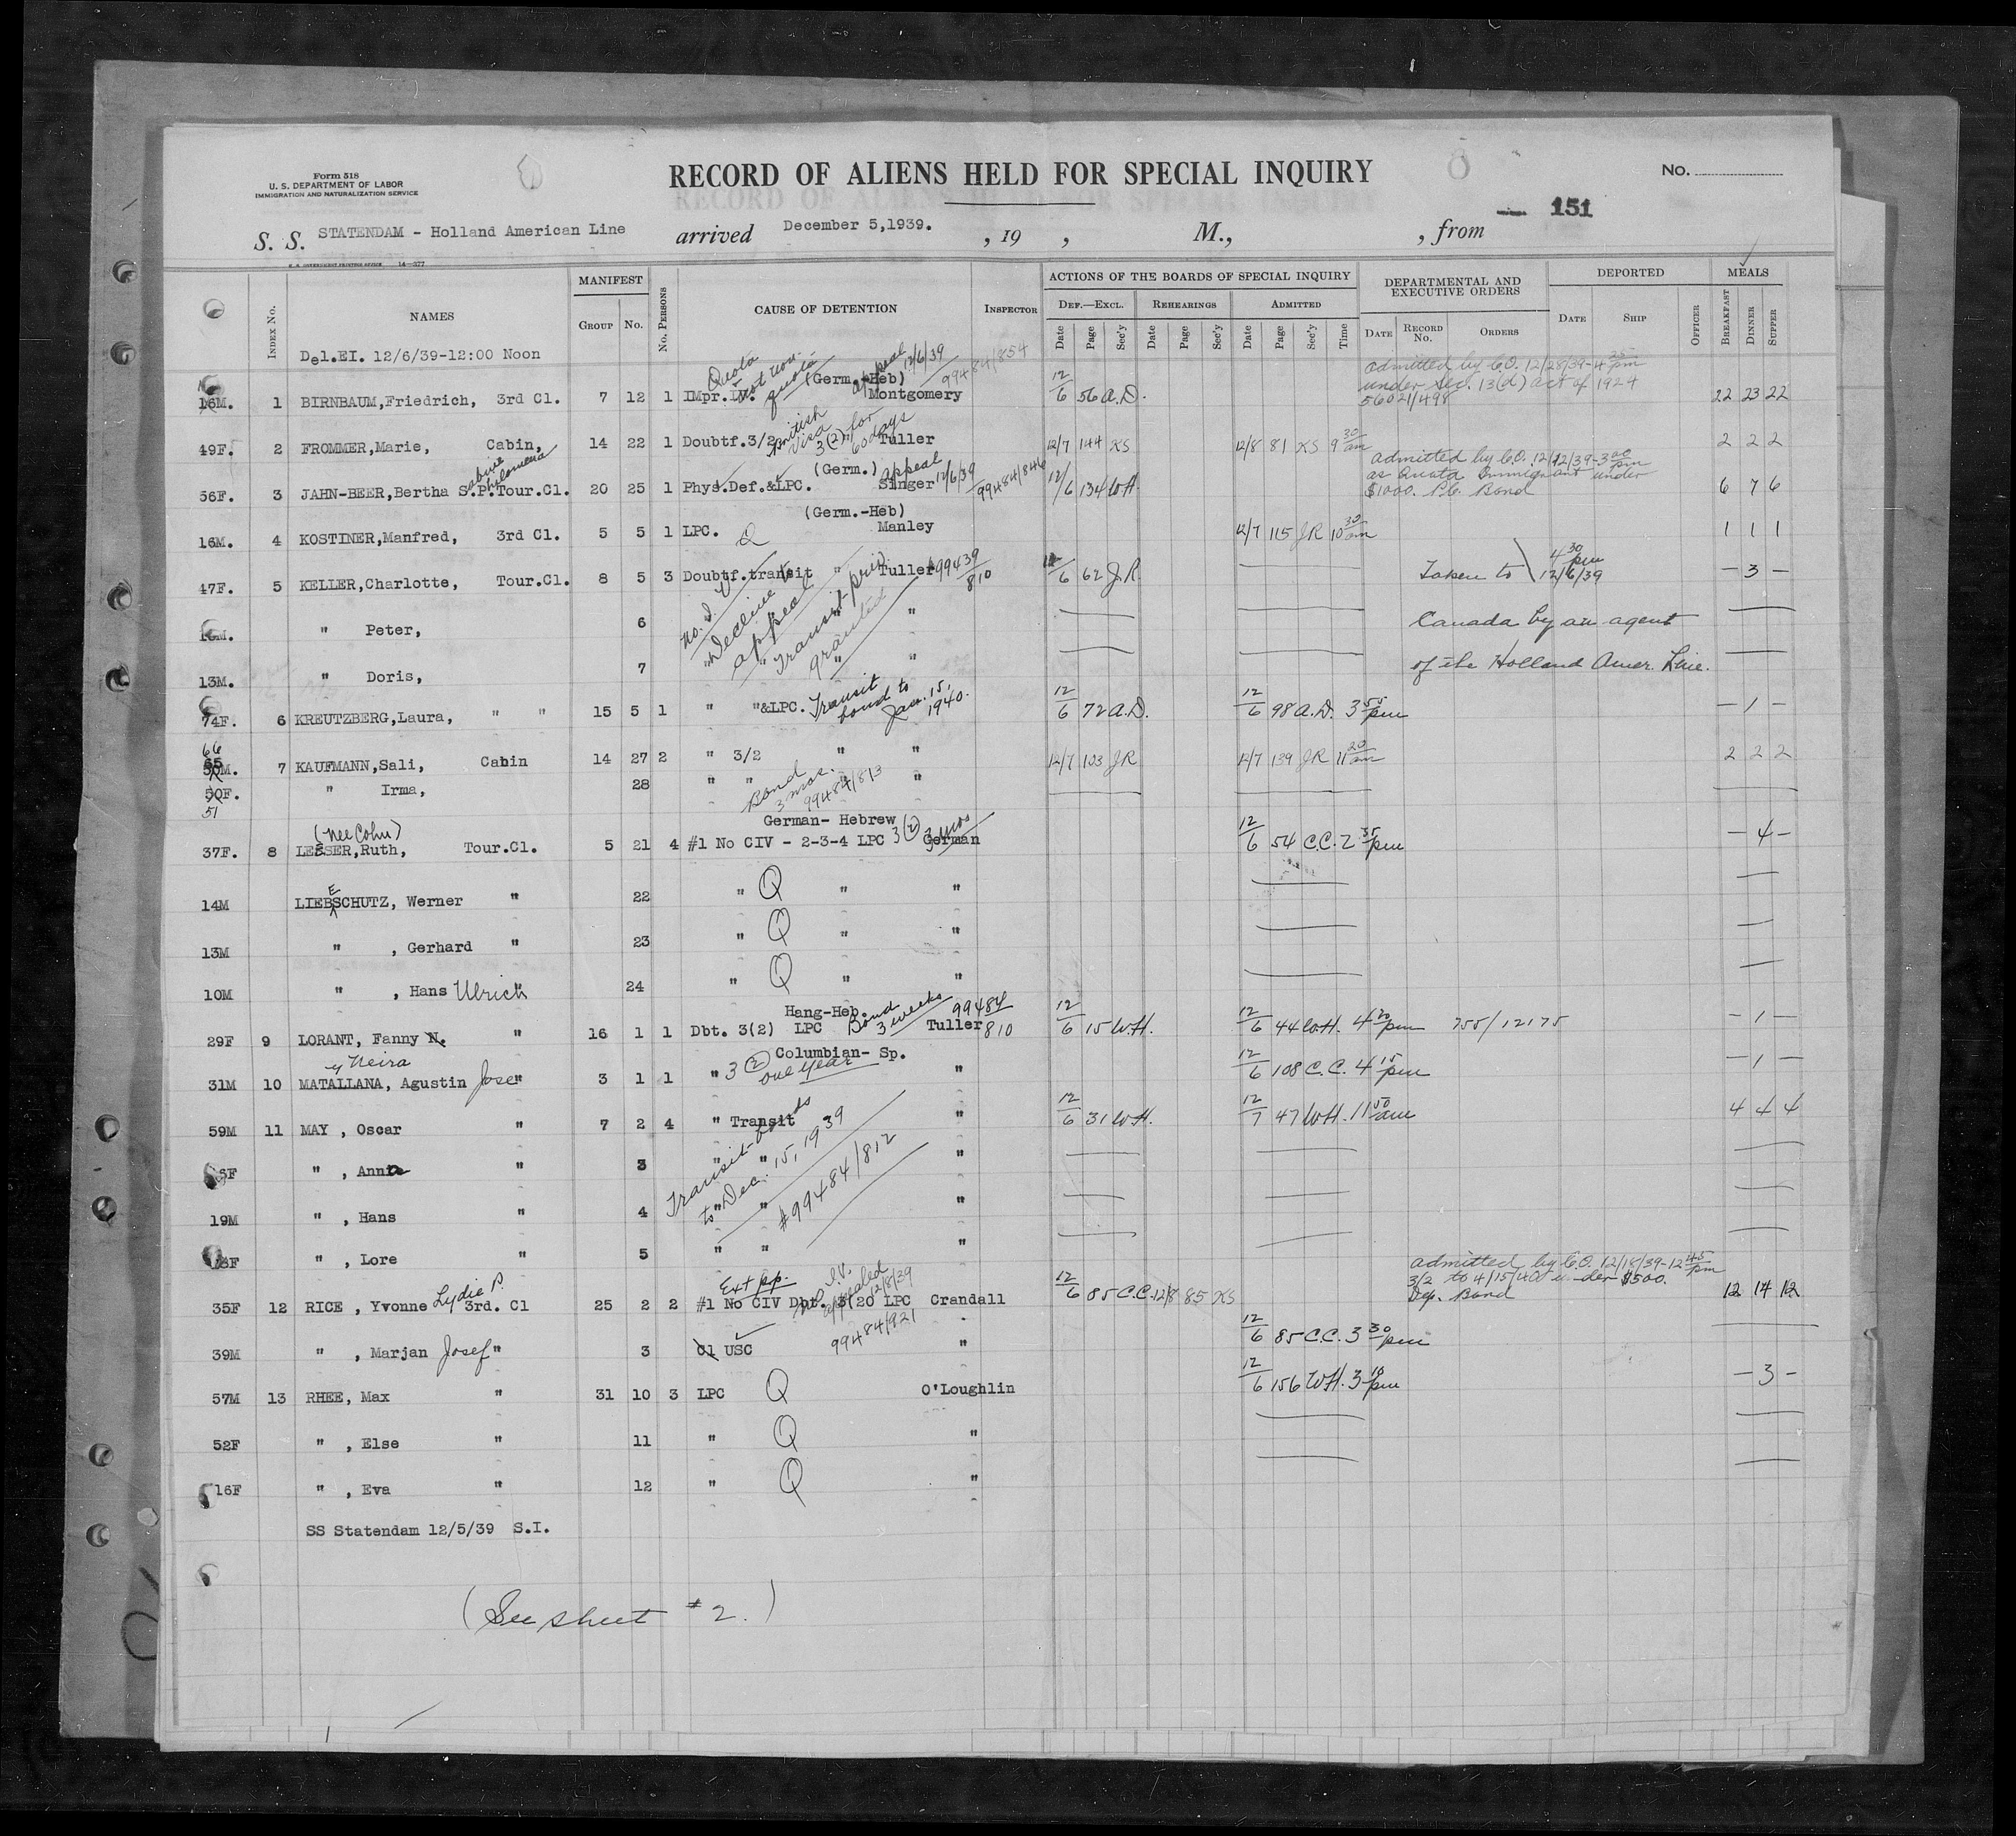 Form 518
U. S. DEPARTMENT OF LABOR
IMMIGRATION AND NATURALIZATION SERVICE
RECORD OF ALIENS HELD FOR SPECIAL INQUIRY
No.
151
S. S. STATENDAM - Holland American Line arrived December 5,1939. , 19 , M., , from
U. S. GOVERNMENT PRINTING OFFICE 14-277
INDEX No. NAMES MANIFEST GROUP No. No. PERSONS CAUSE OF DETENTION INSPECTOR
ACTIONS OF THE BOARDS OF SPECIAL INQUIRY DEF.—EXCL. REHEARINGS ADMITTED
Date Page Sec'y Date Page Sec'y Date Page Sec'y Time
DEPARTMENTAL AND EXECUTIVE ORDERS DATE RECORD No. ORDERS
DEPORTED DATE SHIP OFFICER
MEALS BREAKFAST DINNER SUPPER
Del.EI. 12/6/39-12:00 Noon
Quota not non-quota (Germ.-Heb) appeal 12/6/39 99484/854
admitted by C.O. 12/28/39-4 25 pm
under sec. 13(d) act of 1924
16M. 1 BIRNBAUM,Friedrich, 3rd Cl. 7 12 1 IMpr.IV. Montgomery 12/6 56 A.D. 56021/498 22 23 22
British Visa 3(2) for 60 days
49F. 2 FROMMER,Marie, Cabin, 14 22 1 Doubtf.3/2 Tuller 12/7 144 KS 12/8 81 KS 9 30 am 2 2 2
(Germ.) appeal 12/6/39 99484/846
admitted by C.O. 12/12/39-3 00 pm
as Quota Immigrant under
$1000. P.C. Bond
56F. 3 JAHN-BEER,Bertha S.P. Philomena Tour.Cl. 20 25 1 Phys.Def.&LPC. Singer 12/6 134 W.H. 6 7 6
(Germ.-Heb)
16M. 4 KOSTINER,Manfred, 3rd Cl. 5 5 1 LPC. Q Manley 12/7 115 JR 10 30 am 1 1 1
47F. 5 KELLER,Charlotte, Tour.Cl. 8 5 3 Doubtf.transit " Tuller 12/6 62 J.R. Taken to 4 30 pm 12/6/39 – 3 –
Decline to appeal Transit priv. granted
16M. " Peter, 6 " " Canada by an agent
13M. " Doris, 7 " " " of the Holland Amer. Line.
74F. 6 KREUTZBERG,Laura, " " 15 5 1 " "&LPC. Transit bond to Jan. 15, 1940. 12/6 72 A.D. 12/6 98 A.D. 3 55 pm – 1 –
66
7 KAUFMANN,Sali, Cabin 14 27 2 " 3/2 " " 12/7 103 JR 12/7 139 JR 11 20 am 2 2 2
50F. " Irma, 28 " " " Bond 3 mos. 99484/813
51
(nee Cohn) German- Hebrew
37F. 8 LESSER,Ruth, Tour.Cl. 5 21 4 #1 No CIV - 2-3-4 LPC 3(2) 3 mos German 12/6 54 C.C. 2 35 pm – 4 –
14M LIEBESCHUTZ, Werner " 22 " Q " "
13M " , Gerhard " 23 " Q " "
10M " , Hans Ulrich " 24 " Q " "
Hang-Heb. Bond 3 weeks 99484/810
29F 9 LORANT, Fanny N. " 16 1 1 Dbt. 3(2) LPC Tuller 12/6 15 W.H. 12/6 44 W.H. 4 20 pm 755/12175 – 1 –
y Neira Columbian- Sp.
31M 10 MATALLANA, Agustin Jose " 3 1 1 " 3(2) one year " 12/6 108 C.C. 4 15 pm – 1 –
59M 11 MAY , Oscar " 7 2 4 " Transit " 12/6 31 W.H. 12/7 47 W.H. 11 50 am 4 4 4
Transit-bonds to Dec. 15, 1939 #99484/812
" , Annie " 3 " " "
19M " , Hans " 4 " " "
" , Lore " 5 " " "
Ext pp. No I.V. appealed 12/8/39
admitted by C.O. 12/18/39-12 45 pm
3/2 to 4/15/40 under $500.
Dep. Bond
35F 12 RICE , Yvonne Lydie P. 3rd. Cl 25 2 2 #1 No CIV Dbt. 3(20 LPC Crandall 12/6 85 C.C. 12/8 85 KS 12 14 12
99484/921
39M " , Marjan Josef " 3 Cl USC " 12/6 85 C.C. 3 30 pm
57M 13 RHEE, Max " 31 10 3 LPC Q O'Loughlin 12/6 156 W.H. 3 10 pm – 3 –
52F " , Else " 11 " Q "
16F " , Eva " 12 " Q "
SS Statendam 12/5/39 S.I.
(See sheet #2.)